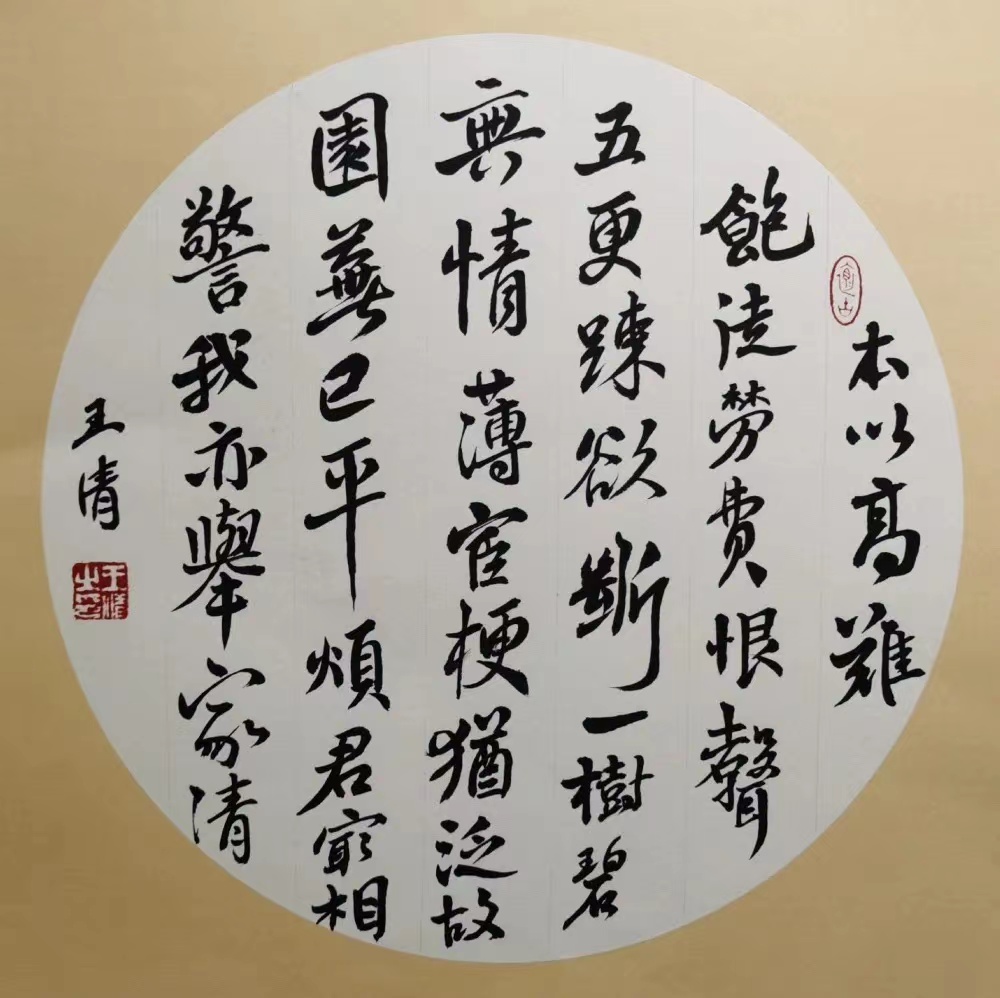 本以高難
飽徒勞費恨聲
五更踈欲斷一樹碧
無情薄宦梗猶泛故
園蕪已平煩君㝡相
警我亦舉家清
王